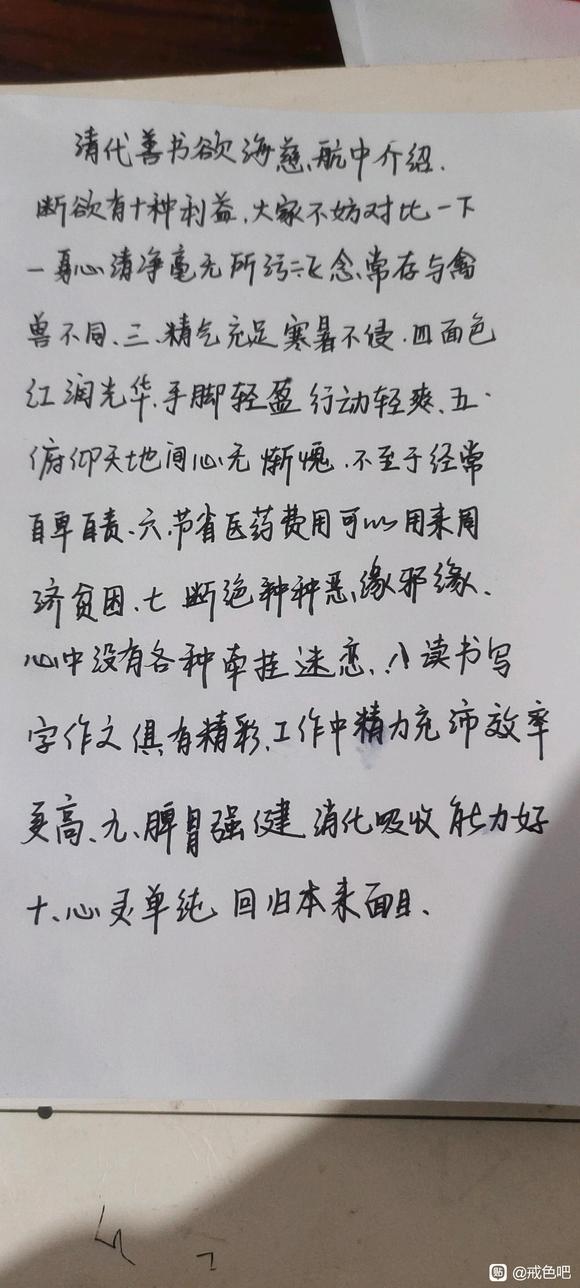 清代善书欲海慈航中介绍.
断欲有十种利益,大家不妨对比一下
一身心清净毫无所污二飞念、常存与禽
兽不同、三、精气充足寒暑不侵.四面色
红润光华、手脚轻盈行动轻爽、五.
俯仰天地间心无惭愧.不至于经常
自卑自责、六.节省医药费用可以用来周
济贫困、七断绝种种恶缘邪缘、
心中没有各种牵挂迷恋、八读书写
字作文俱有精彩、工作中精力充沛效率
更高、九、脾胃强健消化吸收能力好
十、心灵单纯回归本来面目、
贴 @戒色吧